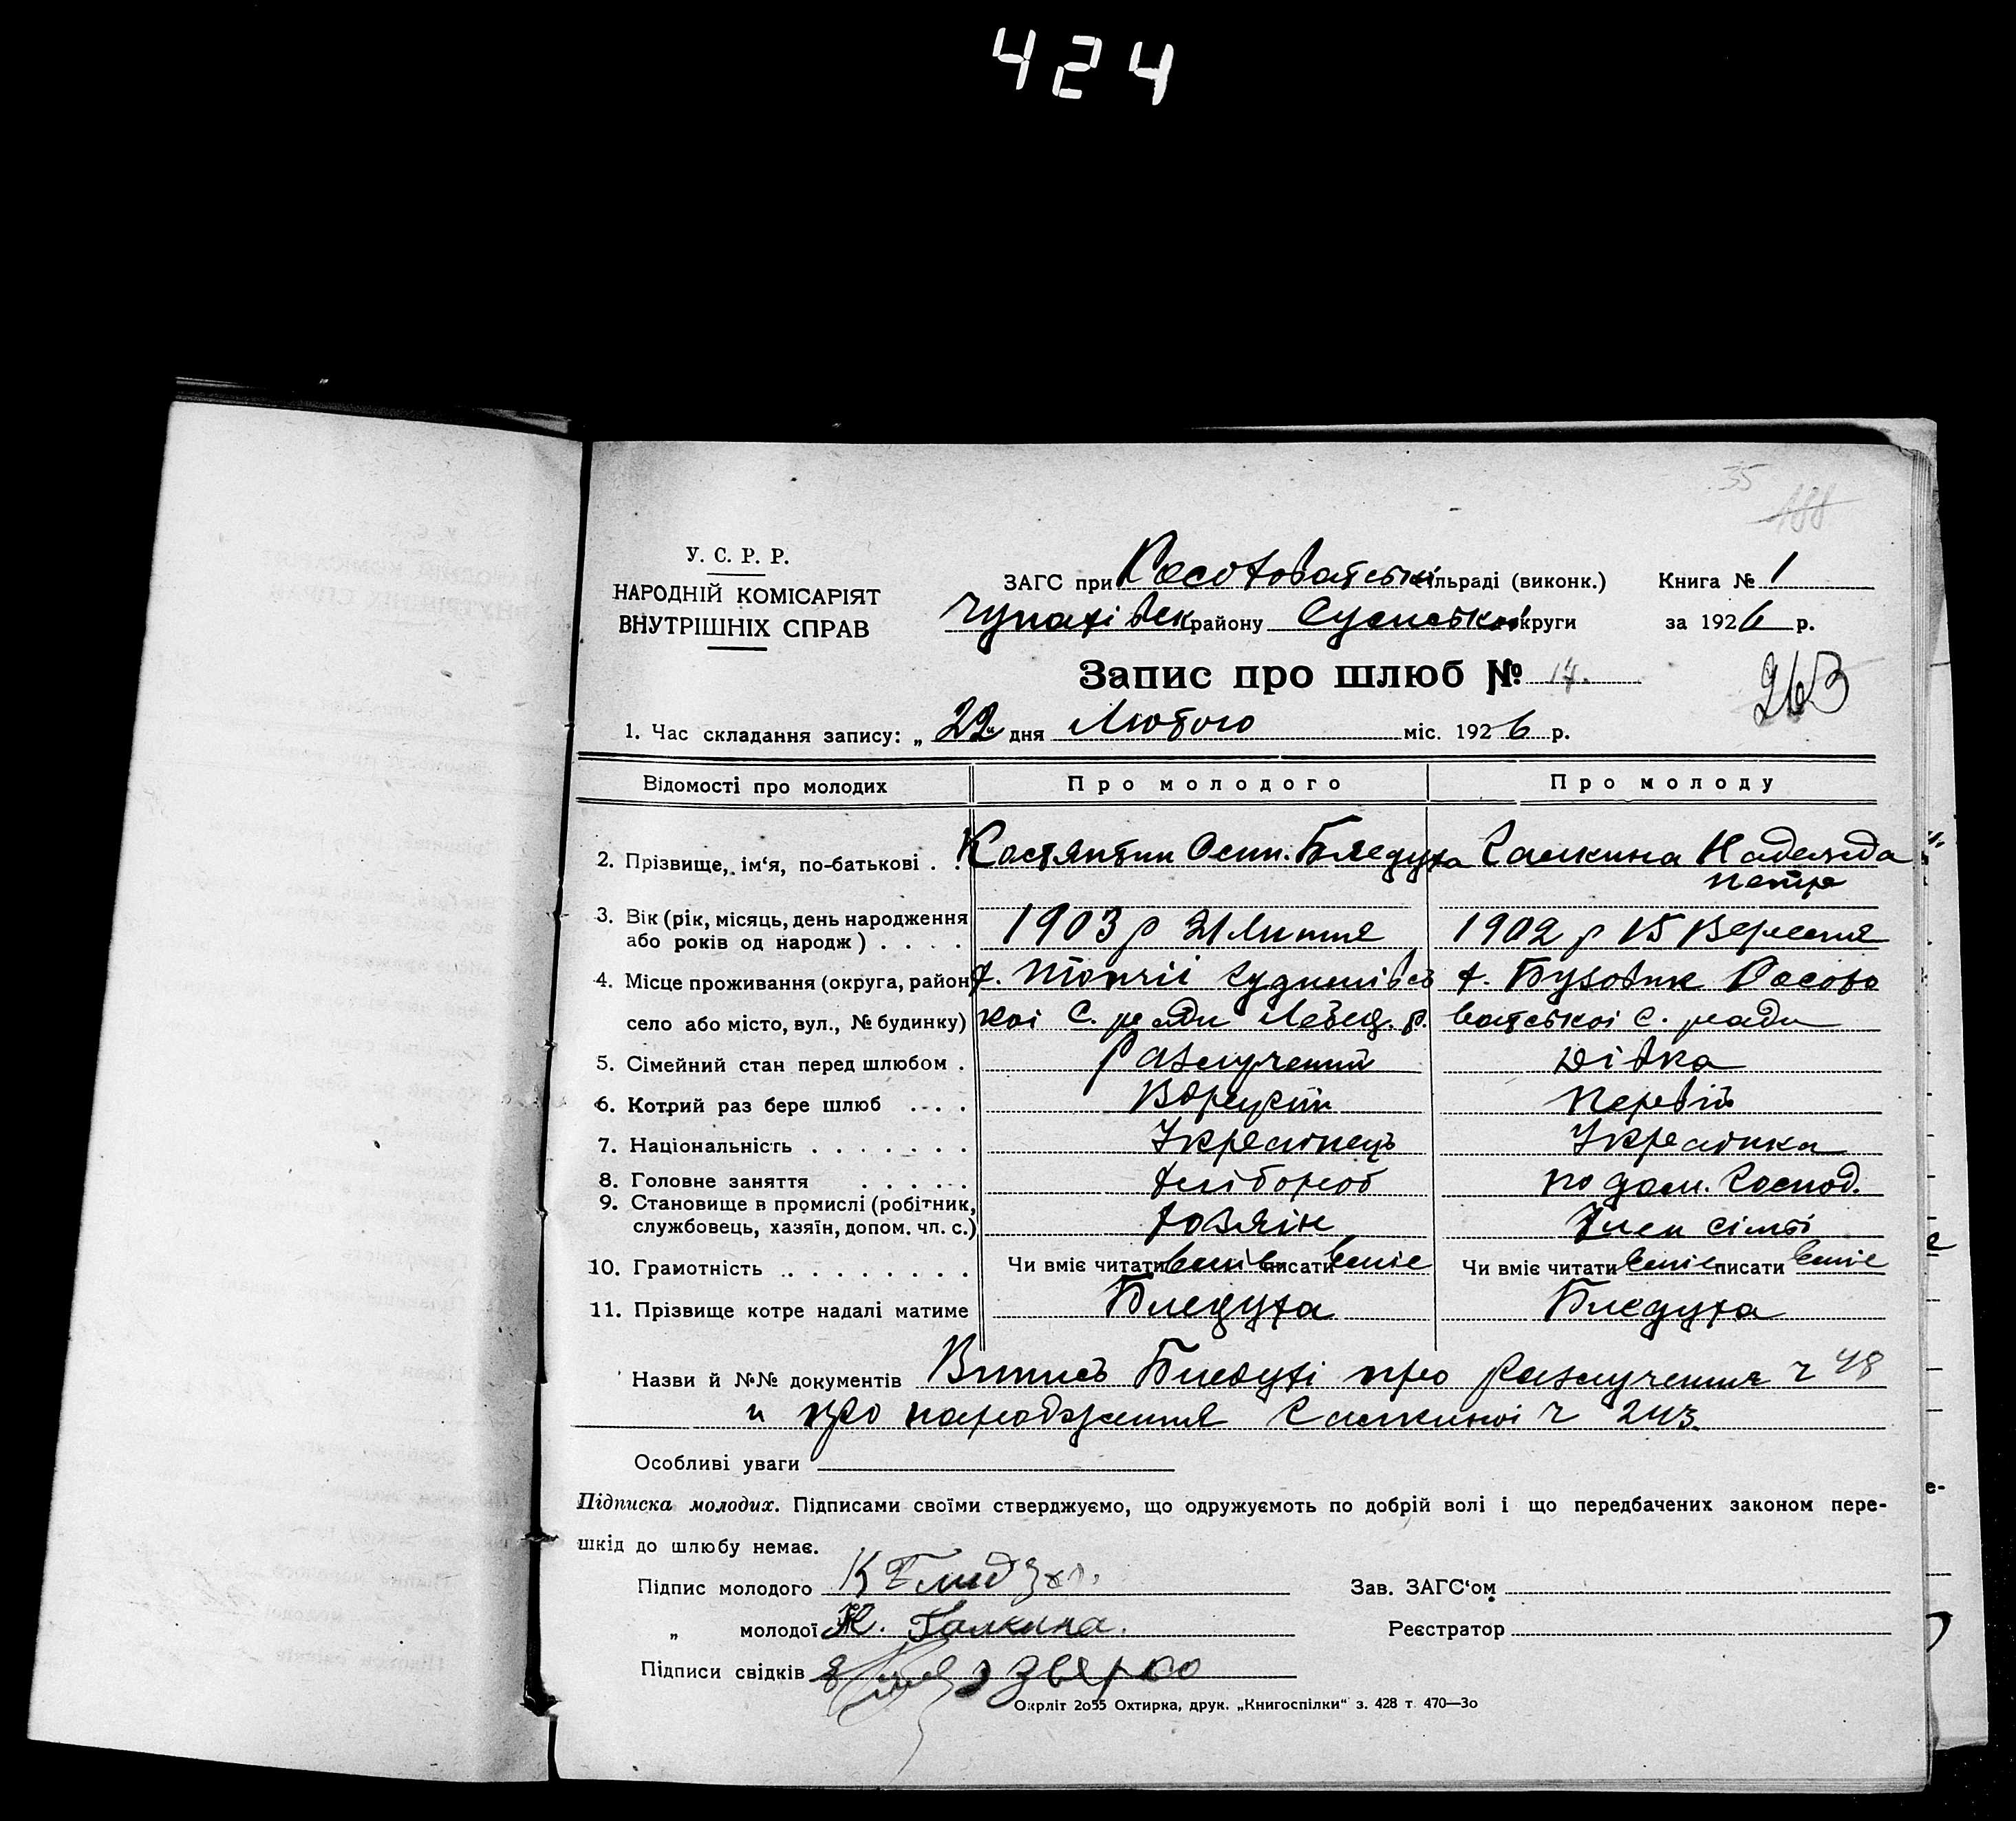 424
35
188
У. С. Р. Р.
НАРОДНІЙ КОМІСАРІЯТ
ВНУТРІШНІХ СПРАВ
ЗАГС при Расоховатській сільраді (виконк.) Книга № 1
Чупахівськ району Сумської округи за 1926 р.
Запис про шлюб № 14.
263
1. Час складання запису: „22" дня Лютого міс. 1926 р.
Відомості про молодих Про молодого Про молоду
2. Прізвище, ім'я, по-батькові . . Костянтин Осип. Бледуха Галкина Надежда
Петр
3. Вік (рік, місяць, день народження
або років од народж) . . . . 1903 р 21 Липня 1902 р 15 Вересня
4. Місце проживання (округа, район х. Топчії х. Бузовик Расохо
село або місто, вул., № будинку) кої С. ради Лебед. р. ватської с. ради
5. Сімейний стан перед шлюбом . Разлучений Дівка
6. Котрий раз бере шлюб . . . . Вдругий Первій
7. Національність . . . . . . . Українець Українка
8. Головне заняття . . . . . Хлібороб по дом. Господ.
9. Становище в промислі (робітник,
службовець, хазяїн, допом. чл. с.) Хозяін Член сімьі
10. Грамотність . . . . . . . . Чи вміє читати вміє писати вміє Чи вміє читати вміє писати вміє
11. Прізвище котре надалі матиме Бледуха Бледуха
Назви й №№ документів Випись Бледухі про разлучення ч 48
и про народження Галкиної ч 243.
Особливі уваги
Підписка молодих. Підписами своїми стверджуємо, що одружуємоть по добрій волі і що передбачених законом пере-
шкід до шлюбу немає.
Підпис молодого К Блид Зав. ЗАГС'ом
„ молодої Н. Галкина. Реєстратор
Підписи свідків
Окрліт 2о55 Охтирка, друк. „Книгоспілки" з. 428 т. 470—3о